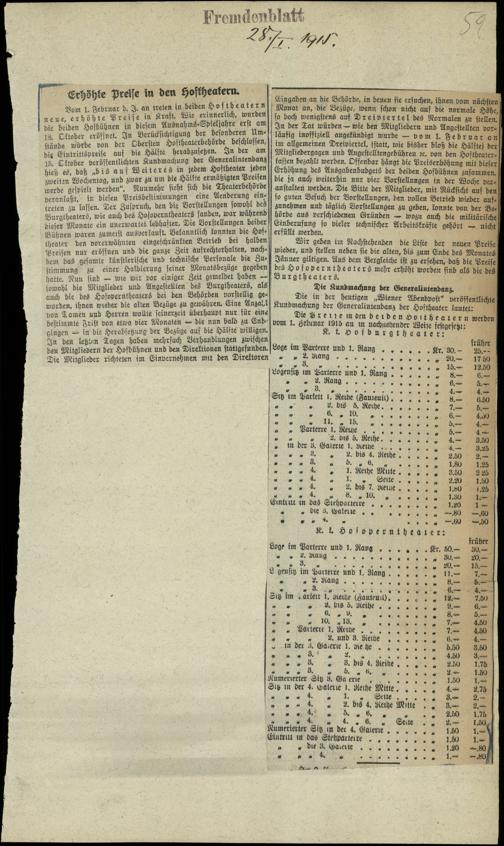 Fremdenblatt
28./I. 1915.
59
Erhöhte Preise in den Hoftheatern.
Vom 1. Februar d. J. an treten in beiden Hoftheatern
neue, erhöhte Preise in Kraft. Wie erinnerlich, wurden
die beiden Hofbühnen in diesem Ausnahms-Spieljahre erst am
18. Oktober eröffnet. In Berücksichtigung der besonderen Um-
stände wurde von der Obersten Hoftheaterbehörde beschlossen,
die Eintrittspreise auf die Hälfte herabzusetzen. In der am
15. Oktober veröffentlichten Kundmachung der Generalintendanz
hieß es, daß „bis auf Weiteres in jedem Hoftheater jeden
zweiten Wochentag, und zwar zu um die Hälfte ermäßigten Preisen
werde gespielt werden“. Nunmehr sieht sich die Theaterbehörde
veranlaßt, in diesen Preisbestimmungen eine Aenderung ein-
treten zu lassen. Der Zuspruch, den die Vorstellungen sowohl des
Burgtheaters, wie auch des Hofoperntheaters fanden, war während
dieser Monate ein unerwartet lebhafter. Die Vorstellungen beider
Bühnen waren zumeist ausverkauft. Bekanntlich konnten die Hof-
theater den vorerwähnten eingeschränkten Betrieb bei halben
Preisen nur eröffnen und die ganze Zeit aufrechterhalten, nach-
dem das gesamte künstlerische und technische Personale die Zu-
stimmung zu einer Halbierung seiner Monatsbezüge gegeben
hatte. Nun sind — wie wir vor einiger Zeit gemeldet haben —
sowohl die Mitglieder und Angestellten des Burgtheaters, als
auch die des Hofoperntheaters bei den Behörden vorstellig ge-
worden, ihnen wieder die alten Bezüge zu gewähren. Eine Anzahl
von Damen und Herren wollte seinerzeit überhaupt nur für eine
bestimmte Frist von etwa vier Monaten — die nun bald zu End-
gingen — in die Herabsetzung der Bezüge auf die Hälfte willigen.
In den letzten Tagen haben mehrfach Verhandlungen zwischen
den Mitgliedern der Hofbühnen und den Direktionen stattgefunden.
Die Mitglieder richteten im Einvernehmen mit den Direktoren
Eingaben an die Behörde, in denen sie ersuchen, ihnen vom nächsten
Monat an, die Bezüge, wenn schon nicht auf die normale Höhe,
so doch wenigstens auf Dreiviertel des Normalen zu stellen.
In der Tat würden — wie den Mitgliedern und Angestellten vor-
läufig inoffiziell angekündigt wurde — vom 1. Februar an
im allgemeinen Dreiviertel, statt, wie bisher bloß die Hälfte der
Mitgliedergagen und Angestelltengehälter u. von den Hoftheater-
kassen bezahlt werden. Offenbar hängt die Preiserhöhung mit dieser
Erhöhung des Ausgabenbudgets der beiden Hofbühnen zusammen,
die ja auch weiterhin nur vier Vorstellungen in der Woche ver-
anstalten werden. Die Bitte der Mitglieder, mit Rücksicht auf den
so guten Besuch der Vorstellungen, den vollen Betrieb wieder auf-
zunehmen und täglich Vorstellungen zu geben, konnte von der Be-
hörde aus verschiedenen Gründen — wozu auch die militärische
Einberufung so vieler technischer Arbeitskräfte gehört — nicht
erfüllt werden.
Wir geben im Nachstehenden die Liste der neuen Preise
wieder, und stellen neben sie die alten, bis zum Ende des Monates
Jänner giltigen. Aus dem Vergleich ist zu ersehen, daß die Preise
des Hofoperntheaters mehr erhöht worden sind als die des
Burgtheaters.
Die Kundmachung der Generalintendanz.
Die in der heutigen „Wiener Abendpost“ veröffentlichte
Kundmachung der Generalintendanz der Hoftheater lautet:
Die Preise in den beiden Hoftheatern werden
vom 1. Februar 1915 an in nachstehender Weise festgesetzt:
K. k. Hofburgtheater:
früher
Loge im Parterre und 1. Rang . . . Kr. 30.— 25.—
„ „ 2. Rang . . . 20.— 17.50
„ „ 3. „ . . . 15.— 12.50
Logensitz im Parterre und 1. Rang . . . 8.— 6.—
„ „ 2. Rang . . . 6.— 5.—
„ „ 3. „ . . . 4.— 3.—
Sitz im Parkett 1. Reihe (Fauteuil) . . . 8.— 6.50
„ „ „ 2. bis 5. Reihe . . . 7.— 5.—
„ „ „ 6. „ 10. „ . . . 6.— 5.—
„ „ „ 11. „ 15. „ . . . 5.— 4.—
„ „ Parterre 1. Reihe . . . 5.— 4.—
„ „ „ 2. bis 5. Reihe . . . 4.— 3.50
„ in der 3. Galerie 1. Reihe . . . 4.— 3.25
„ „ „ 3. „ 2. bis 4. Reihe . . . 2.50 2.—
„ „ „ 3. „ 5. „ 6. „ . . . 1.80 1.25
„ „ „ 4. „ 1. Reihe Mitte . . . 3.50 2.25
„ „ „ 4. „ 1. „ Seite . . . 2.20 1.50
„ „ „ 4. „ 2. bis 7. Reihe . . . 1.80 1.25
„ „ „ 4. „ 8. „ 10. „ . . . 1.30 1.—
Eintritt in das Stehparterre . . . 1.20 1.—
„ „ die 3. Galerie . . . —.80 —.60
„ „ „ 4. „ . . . —.60 —.50
K. k. Hofoperntheater:
früher
Loge im Parterre und 1. Rang . . . Kr. 50.— 30.—
„ „ 2. Rang . . . 30.— 20.—
„ „ 3. „ . . . 20.— 15.—
Logensitz im Parterre und 1. Rang . . . 11.— 7.—
„ „ 2. Rang . . . 8.— 5.—
„ „ 3. „ . . . 6.— 4.—
Sitz im Parkett 1. Reihe (Fauteuil) . . . 12.— 7.50
„ „ „ 2. bis 5. Reihe . . . 9.— 6.—
„ „ „ 6. „ 9. „ . . . 8.— 5.—
„ „ „ 10. „ 13. „ . . . 7.— 4.50
„ „ Parterre 1. Reihe . . . 7.— 4.—
„ „ „ 2. und 3. Reihe . . . 6.— 4.—
„ in der 3. Galerie 1. Reihe . . . 5.50 3.50
„ „ „ 3. „ 2. „ . . . 4.50 3.—
„ „ „ 3. „ 3. bis 4. Reihe . . . 2.50 1.75
„ „ „ 3. „ 5. „ 6. „ . . . 2.— 1.50
Numerierter Sitz 3. Galerie . . . 1.50 1.—
Sitz in der 4. Galerie 1. Reihe Mitte . . . 4.— 2.75
„ „ „ 4. „ 1. „ Seite . . . 3.— 2.—
„ „ „ 4. „ 2. bis 4. Reihe Mitte . . . 3.— 2.—
„ „ „ 4. „ 5. „ 6. „ „ . . . 2.50 1.75
„ „ „ 4. „ 4. „ 6. „ Seite . . . 2.— 1.50
Numerierter Sitz in der 4. Galerie . . . 1.50 1.—
Eintritt in das Stehparterre . . . 1.50 1.—
„ „ die 3. Galerie . . . 1.20 —.80
„ „ „ 4. „ . . . 1.— —.80